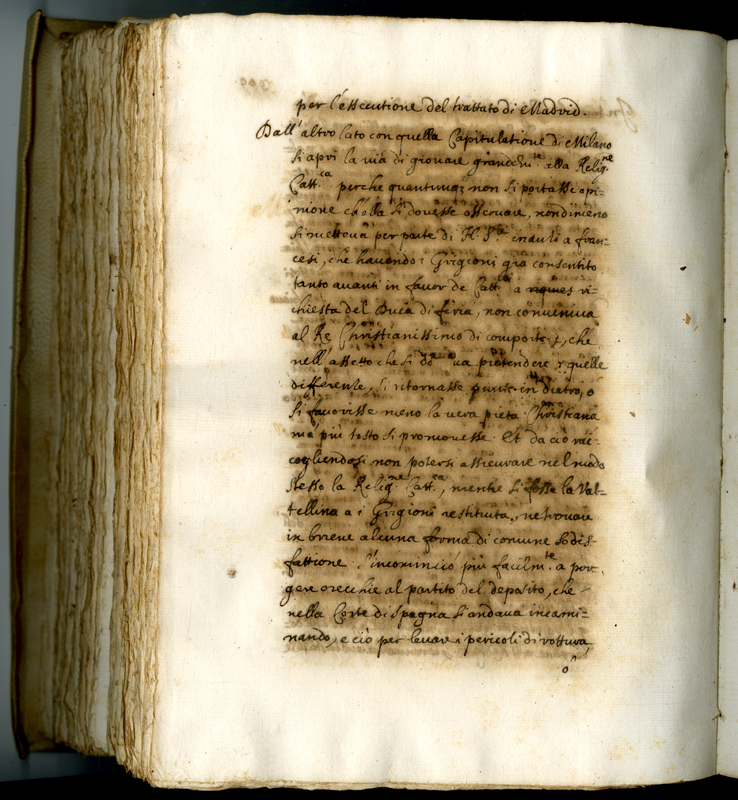 per l'essecutione del trattato di Madrid.
Dall' altro lato con quella Capitulatione di Milano
si aprì la via di giovare grandem.te alla Relig.ne
Catt.ca perche quantunq; non si portasse opi=
nione ch'ella si dovesse osservare, nondimeno
si metteva per parte di N. S.re inanti a fran=
cesi, che havendo i Grigioni già consentito
tanto avanti in favor de Catt.ci a ri=
chiesta del Duca di feria, non conveniva
al Re Christianissimo di comportar, che
nell' assetto che si do va pretendere quelle
differenze, si ritornasse in dietro, o
si favorisse meno la vera pietà Christiana
mà più tosto si promovesse. Et da ciò rac=
cogliendosi non potersi assicurare nel modo
stesso la Relig.ne Catt.ca, mentre si fosse la Val=
tellina a i Grigioni restituita, ne trovare
in brieve alcuna forma di comune sodis=
fattione. S'incominciò più facilm.te a por=
gere orecchie al partito del deposito, che
nella Corte di Spagna si andava incami=
nando, e ciò per levare i pericoli di rottura,
ò